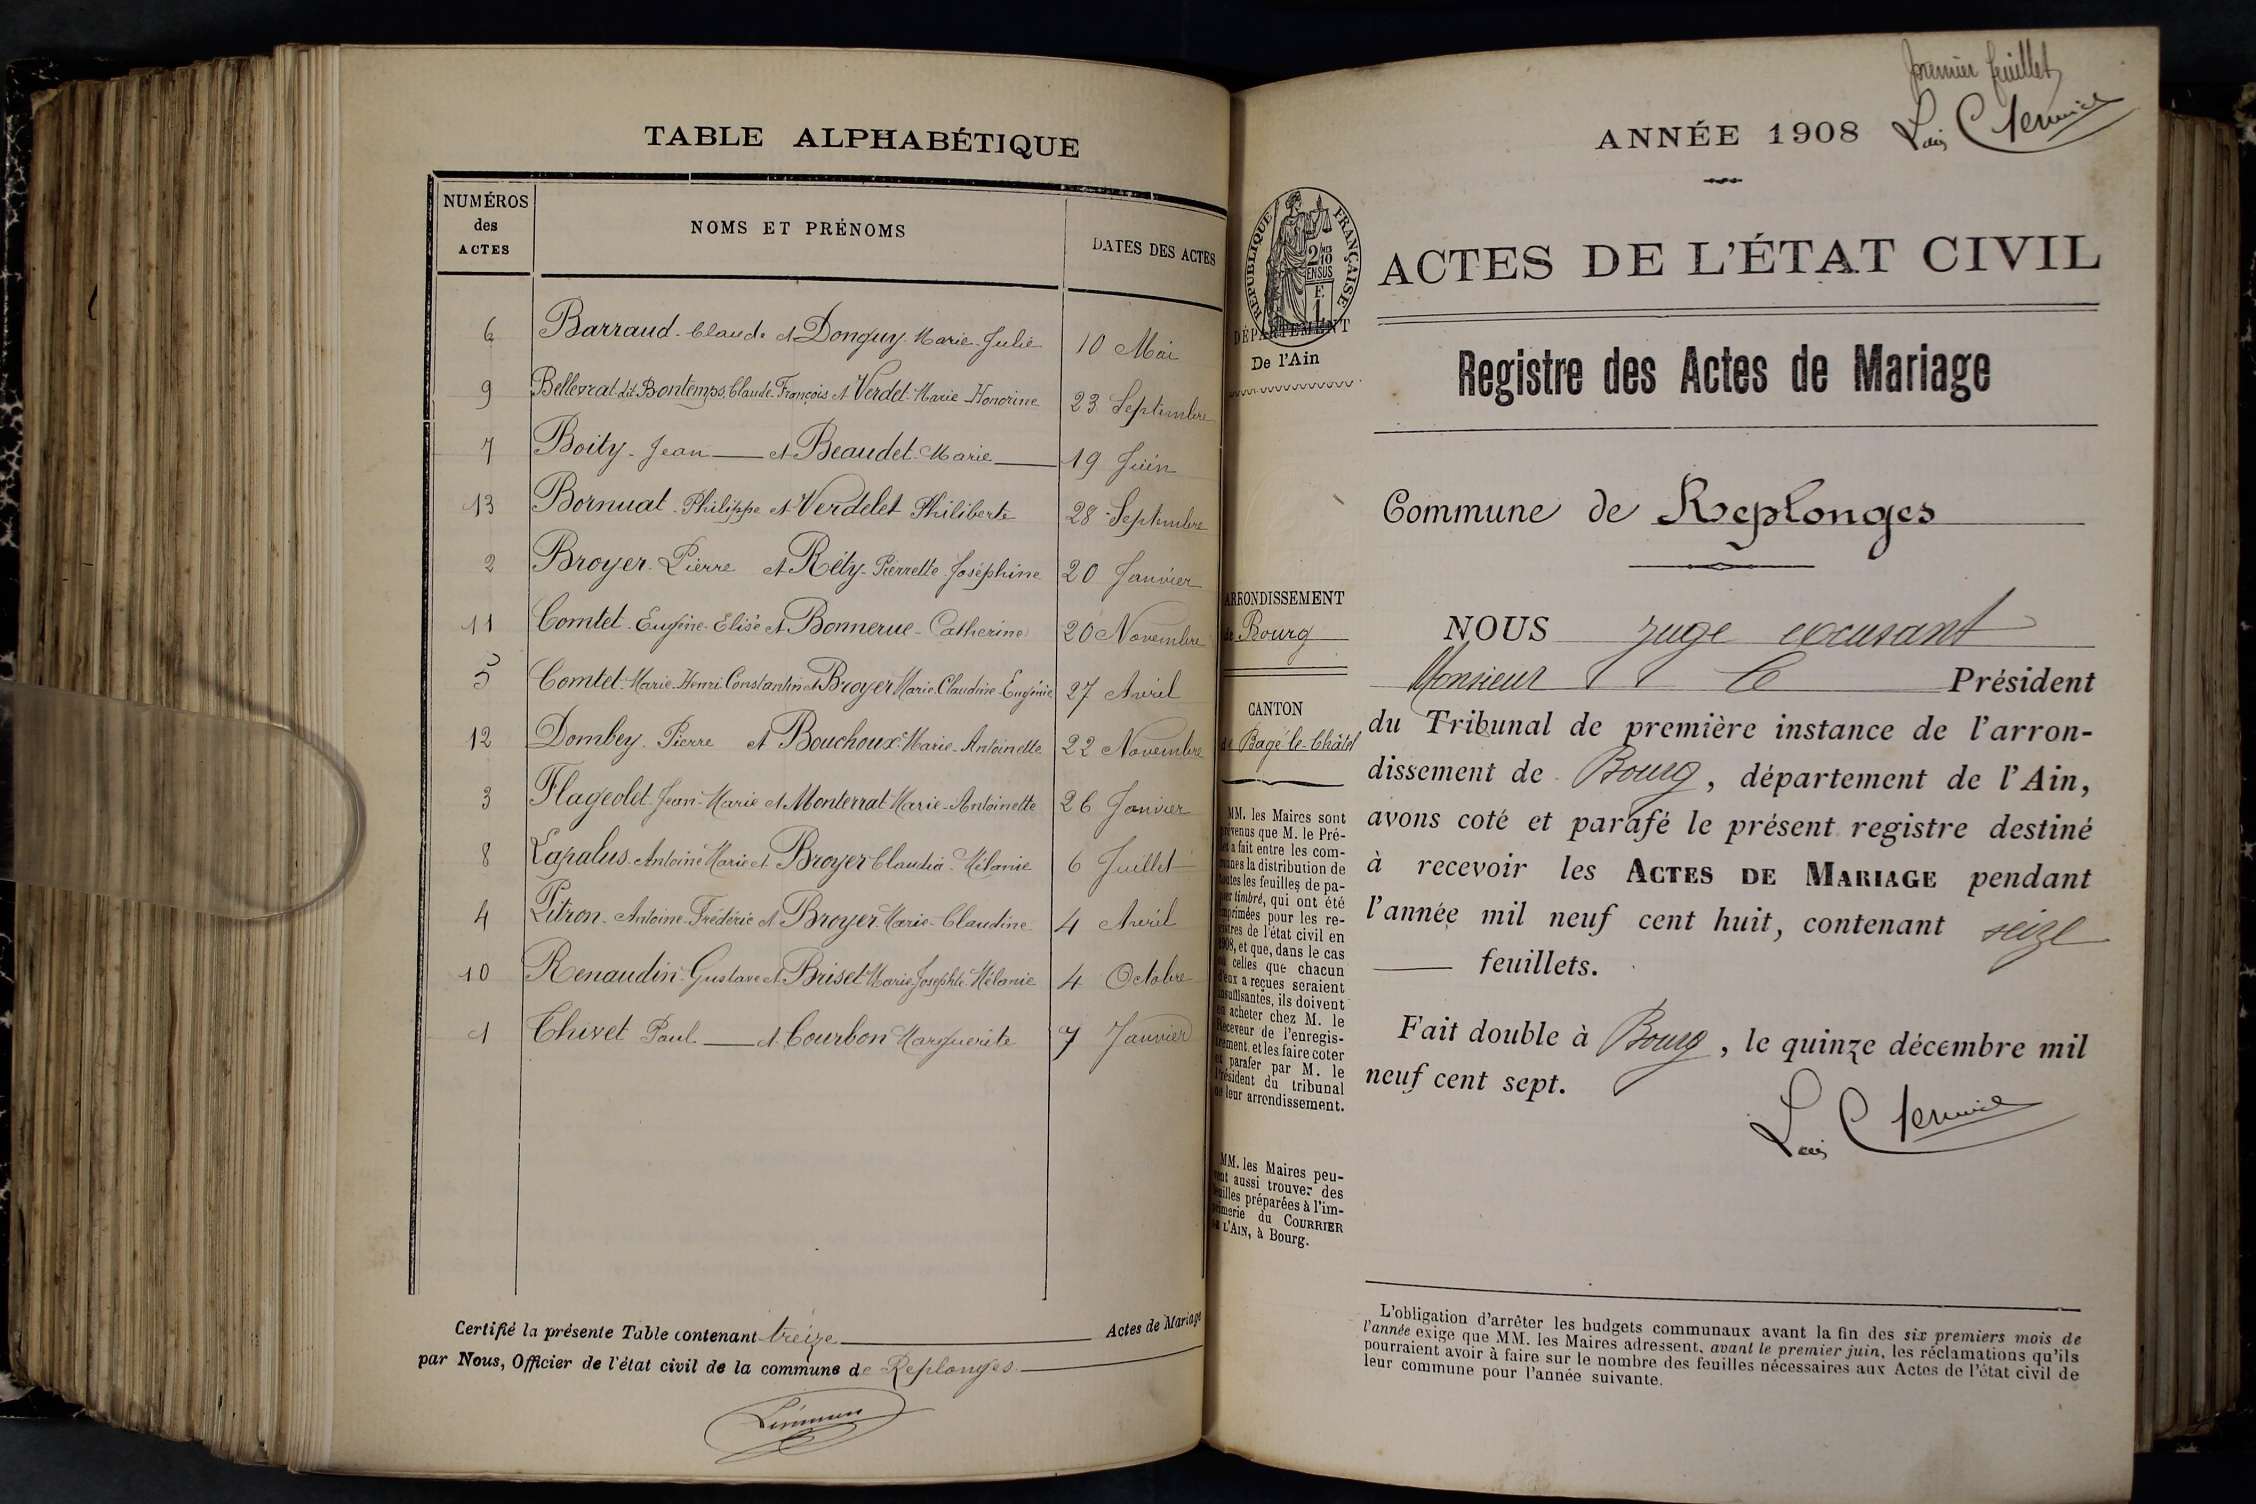 TABLE ALPHABÉTIQUE
NUMÉROS des ACTES
NOMS ET PRÉNOMS
DATES DES ACTES
6 Barraud Claude et Donguy Marie Julie 10 Mai
9 Bellevrat dit Bontemps Claude François et Verdet Marie Honorine 23 Septembre
7 Boity Jean et Beaudet Marie 19 Juin
13 Bornuat Philippe et Verdelet Philiberte 28 Septembre
2 Broyer Pierre et Réty Pierrette Joséphine 20 Janvier
11 Comtet Eugène Elisé et Bonnerue Catherine 20 Novembre
5 Comtet Marie Henri Constantin et Broyer Marie Claudine Eugénie 27 Avril
12 Dombey Pierre et Bouchoux Marie Antoinette 22 Novembre
3 Flageolet Jean Marie et Monterrat Marie Antoinette 26 Janvier
8 Lapalus Antoine Marie et Broyer Claudia Mélanie 6 Juillet
4 Pitron Antoine Frédéric et Broyer Marie Claudine 4 Avril
10 Renaudin Gustave et Briset Marie Josephte Mélanie 4 Octobre
1 Thivet Paul et Courbon Marguerite 7 Janvier
Certifié la présente Table contenant treize Actes de Mariage
par Nous, Officier de l'état civil de la commune de Replonges
premier feuillet
ANNÉE 1908
RÉPUBLIQUE FRANÇAISE
2/10
EN SUS
F.
1
DÉPARTEMENT
De l'Ain
ACTES DE L'ÉTAT CIVIL
Registre des Actes de Mariage
Commune de Replonges
ARRONDISSEMENT
de Bourg
CANTON
de Bagé-le-Châtel
MM. les Maires sont
prévenus que M. le Pré-
fet a fait entre les com-
munes la distribution de
toutes les feuilles de pa-
pier timbré, qui ont été
imprimées pour les re-
gistres de l'état civil en
1908, et que, dans le cas
où celles que chacun
d'eux a reçues seraient
insuffisantes, ils doivent
en acheter chez M. le
Receveur de l'enregis-
trement, et les faire coter
et parafer par M. le
Président du tribunal
de leur arrondissement.
MM. les Maires peu-
vent aussi trouver des
feuilles préparées à l'im-
primerie du COURRIER
DE L'AIN, à Bourg.
NOUS juge excusant
Monsieur le Président
du Tribunal de première instance de l'arron-
dissement de Bourg, département de l'Ain,
avons coté et parafé le présent registre destiné
à recevoir les ACTES DE MARIAGE pendant
l'année mil neuf cent huit, contenant seize
feuillets.
Fait double à Bourg, le quinze décembre mil
neuf cent sept.
L'obligation d'arrêter les budgets communaux avant la fin des six premiers mois de
l'année exige que MM. les Maires adressent, avant le premier juin, les réclamations qu'ils
pourraient avoir à faire sur le nombre des feuilles nécessaires aux Actes de l'état civil de
leur commune pour l'année suivante.